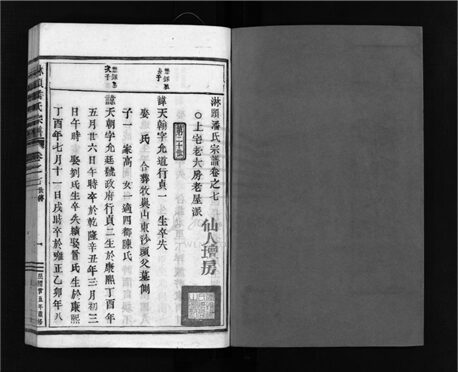 淋頭潘氏宗譜卷之七
○上宅老大房老屋派 仙人壇房
第二十世
諱天翰字允道行貞一 生卒失
娶 氏 合葬牧與山東沙頭父墓側
子一 家高 女一適四都陳氏
諱天朝字允廷號政府行貞二生於康熙丁酉年
五月廿六日午時卒於乾隆辛丑年三月初三
日午時娶劉氏生卒失續娶管氏生於康熙
丁酉年七月十一日戌時卒於雍正乙卯年八